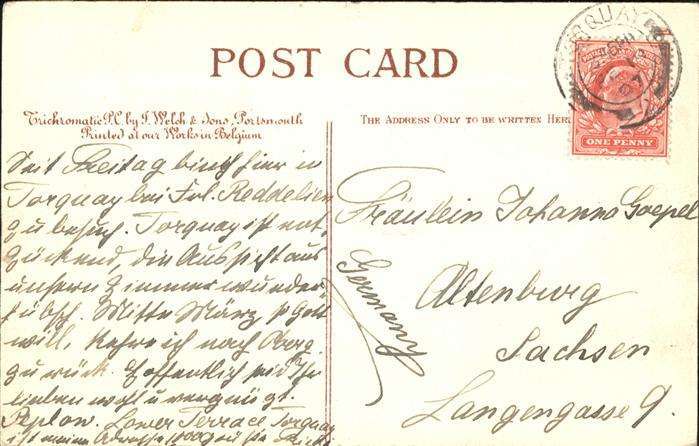 POST CARD
Trichromatic P.C. by J. Welch & Sons, Portsmouth
Printed at our Works in Belgium
THE ADDRESS ONLY TO BE WRITTEN HERE
TORQUAY
ONE PENNY
Seit Freitag bin ich hier in
Torquay bei Frl. Reddelien
zu besuch. Torquay ist ent,
zückend, die Aussicht aus
unsern Zimmer wunder
hübsch. Mitte März, so Gott
will, kehre ich nach
zurück. Hoffentlich seid Ihr
lieben wohl u vergnügt.
Lower Terrace Torquay
ist meine Adresse 1000 Grüße
Fräulein Johanna Goepel
Altenburg
Sachsen
Langengasse 9.
Germany